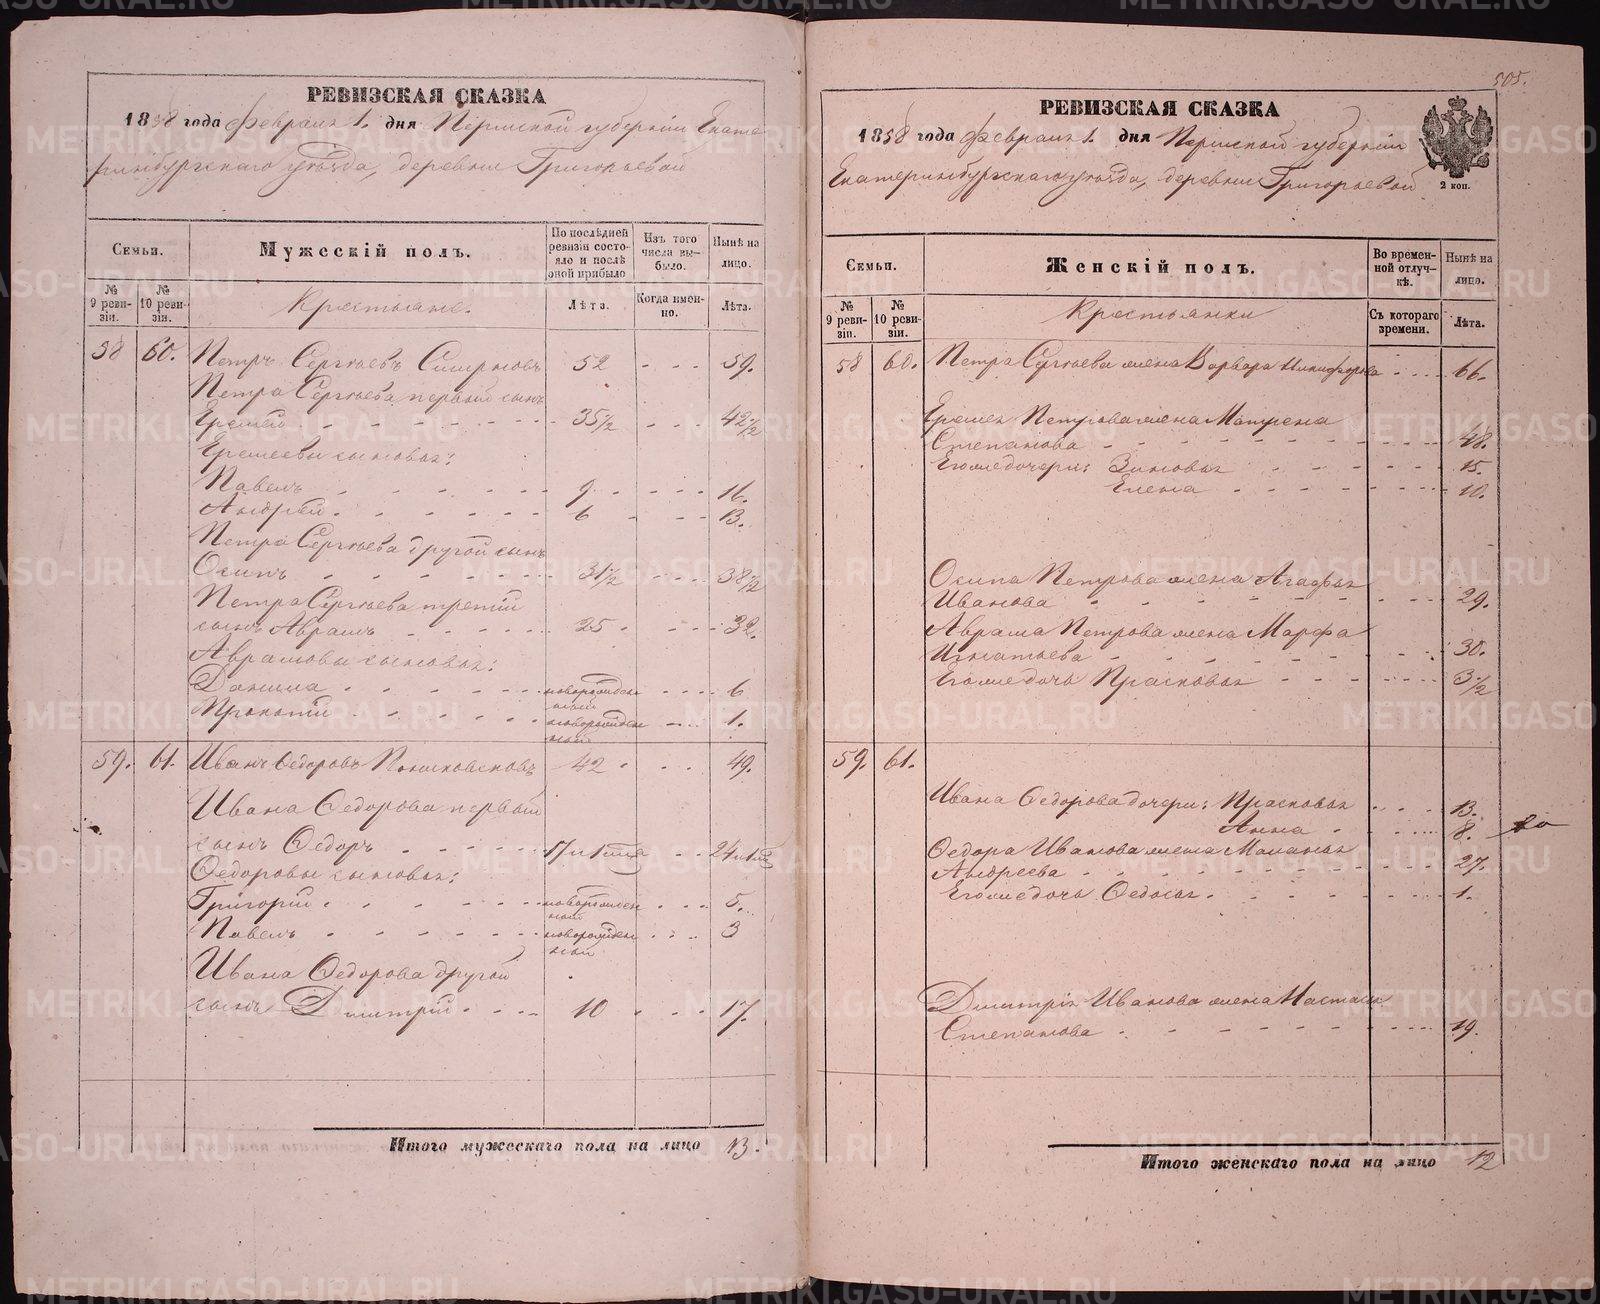 РЕВИЗСКАЯ СКАЗКА
1858 года февраля 1. дня Пермской губернии Екате
ринбургскаго уѣзда, деревни Григорьевой
Семьи.
Мужескій полъ.
По послѣдней ревизіи состояло и послѣ оной прибыло
Изъ того числа выбыло.
Нынѣ на лицо.
№ 9 ревизіи.
№ 10 ревизіи.
Крестьяне.
Лѣта.
Когда именно.
Лѣта.
58 60. Петръ Сергѣевъ Смирновъ 52 59.
Петра Сергѣева первый сынъ
Еремей 35½ 42½
Еремеевы сыновья:
Павелъ 9 16.
Андрей 6 13.
Петра Сергѣева другой сынъ
Осипъ 31½ 38½
Петра Сергѣева третій
сынъ Аврамъ 25 32.
Аврамовы сыновья:
Данила новорожденный 6
Прокопій новорожденный 1.
59. 61. Иванъ Ѳедоровъ 42 49.
Ивана Ѳедорова первый
сынъ Ѳедоръ 17 24
Ѳедоровы сыновья:
Григорій новорожденный 5.
Павелъ новорожденный 3
Ивана Ѳедорова другой
сынъ Дмитрій 10 17.
Итого мужескаго пола на лицо 13.
505.
РЕВИЗСКАЯ СКАЗКА
1858 года февраля 1. дня Пермской губерніи
Екатеринбургскаго уѣзда, деревни Григорьевой
2 коп.
Семьи.
Женскій полъ.
Во временной отлучкѣ.
Нынѣ на лицо.
№ 9 ревизіи.
№ 10 ревизіи.
Крестьянки
Съ котораго времени.
Лѣта.
58 60. Петра Сергѣева жена Варвара Никифорова 66.
Еремея Петрова жена Матрена
Степанова 48.
Его же дочери: Зиновья 15.
Елена 10.
Осипа Петрова жена Агафья
Иванова 29.
Аврама Петрова жена Марфа
Игнатьева 30.
Его же дочь Прасковья 3½
59. 61.
Ивана Ѳедорова дочери: Прасковья 13.
Анна 8.
Ѳедора Иванова жена Маланья
Андреева 27.
Его же дочь Ѳедосья 1.
Дмитрія Иванова жена Настасья
Степанова 19.
Итого женскаго пола на лицо 12
METRIKI.GASO-URAL.RU